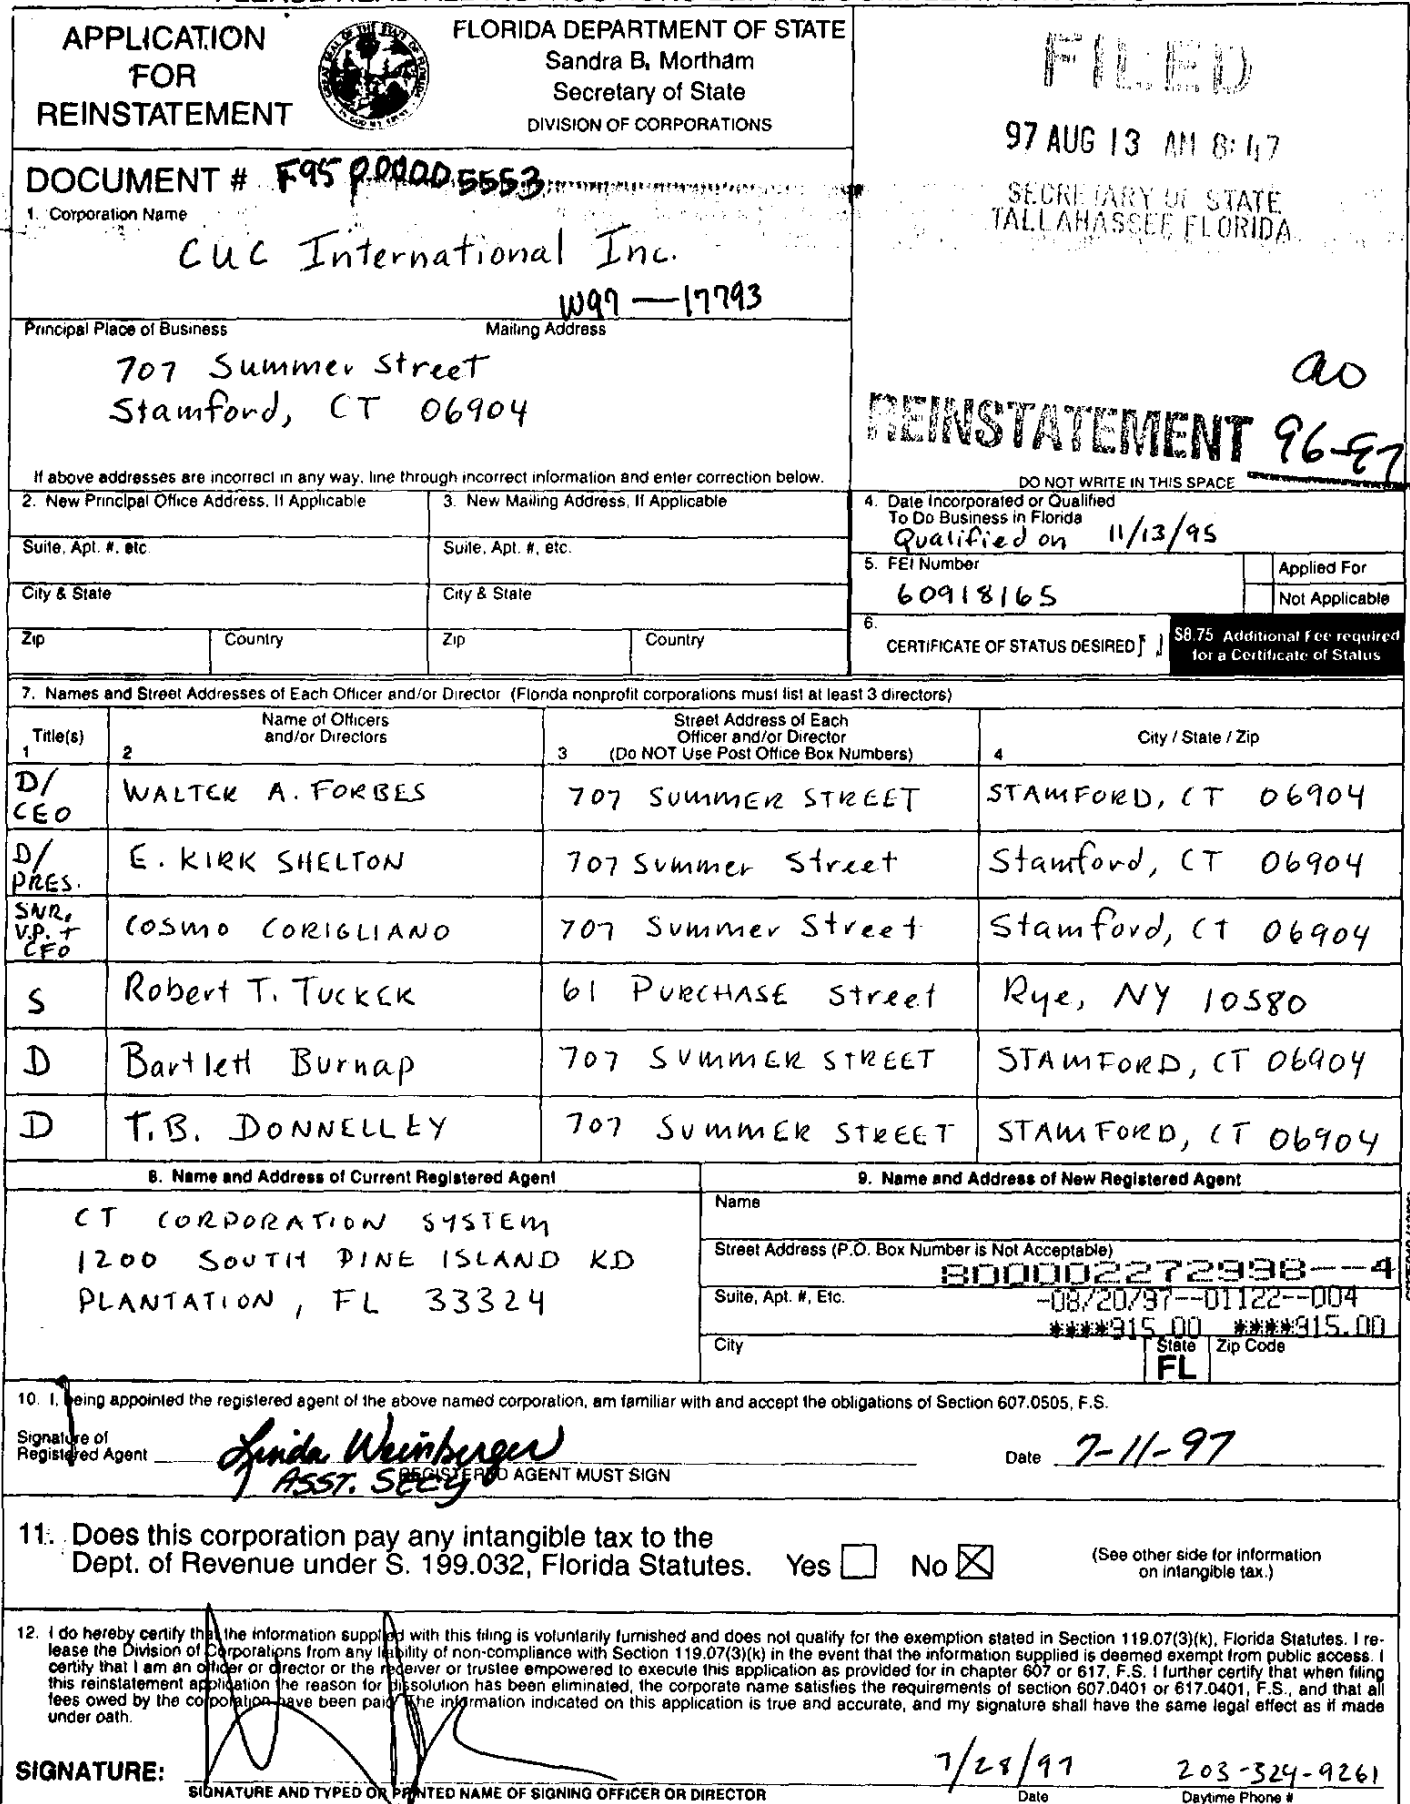 APPLICATION
FOR
REINSTATEMENT
FLORIDA DEPARTMENT OF STATE
Sandra B. Mortham
Secretary of State
DIVISION OF CORPORATIONS
FILED
97 AUG 13 AM 8:47
SECRETARY OF STATE
TALLAHASSEE FLORIDA
DOCUMENT # F95000005553
1. Corporation Name
CUC International Inc.
W97—17793
Principal Place of Business Mailing Address
707 Summer Street
Stamford, CT 06904
REINSTATEMENT 96-97
If above addresses are incorrect in any way, line through incorrect information and enter correction below.
DO NOT WRITE IN THIS SPACE
2. New Principal Office Address, If Applicable
3. New Mailing Address, If Applicable
4. Date Incorporated or Qualified
To Do Business in Florida
Qualified on 11/13/95
Suite, Apt. #, etc.
Suite, Apt. #, etc.
5. FEI Number
60918165
Applied For
Not Applicable
City & State
City & State
Zip Country Zip Country
6.
CERTIFICATE OF STATUS DESIRED [ ]
$8.75 Additional Fee required
for a Certificate of Status
7. Names and Street Addresses of Each Officer and/or Director (Florida nonprofit corporations must list at least 3 directors)
Title(s)
1
Name of Officers
and/or Directors
2
Street Address of Each
Officer and/or Director
3 (Do NOT Use Post Office Box Numbers)
City / State / Zip
4
D/
CEO
WALTER A. FORBES 707 SUMMER STREET STAMFORD, CT 06904
D/
PRES.
E. KIRK SHELTON 707 Summer Street Stamford, CT 06904
SNR.
V.P. +
CFO
COSMO CORIGLIANO 707 Summer Street Stamford, CT 06904
S Robert T. TUCKER 61 PURCHASE Street Rye, NY 10580
D Bartlett Burnap 707 SUMMER STREET STAMFORD, CT 06904
D T.B. DONNELLEY 707 SUMMER STREET STAMFORD, CT 06904
8. Name and Address of Current Registered Agent
CT CORPORATION SYSTEM
1200 SOUTH PINE ISLAND RD
PLANTATION, FL 33324
9. Name and Address of New Registered Agent
Name
Street Address (P.O. Box Number is Not Acceptable)
800002272998--4
Suite, Apt. #, Etc.
-08/20/97--01122--004
****915.00 ****915.00
City
State
FL
Zip Code
10. I, being appointed the registered agent of the above named corporation, am familiar with and accept the obligations of Section 607.0505, F.S.
Signature of
Registered Agent Linda Weinberger Date 7-11-97
ASST. SECY
REGISTERED AGENT MUST SIGN
11. Does this corporation pay any intangible tax to the
Dept. of Revenue under S. 199.032, Florida Statutes. Yes No
(See other side for information
on intangible tax.)
12. I do hereby certify that the information supplied with this filing is voluntarily furnished and does not qualify for the exemption stated in Section 119.07(3)(k), Florida Statutes. I re-
lease the Division of Corporations from any liability of non-compliance with Section 119.07(3)(k) in the event that the information supplied is deemed exempt from public access. I
certify that I am an officer or director or the receiver or trustee empowered to execute this application as provided for in chapter 607 or 617, F.S. I further certify that when filing
this reinstatement application the reason for dissolution has been eliminated, the corporate name satisfies the requirements of section 607.0401 or 617.0401, F.S., and that all
fees owed by the corporation have been paid. The information indicated on this application is true and accurate, and my signature shall have the same legal effect as if made
under oath.
SIGNATURE: 7/28/97 203-324-9261
SIGNATURE AND TYPED OR PRINTED NAME OF SIGNING OFFICER OR DIRECTOR Date Daytime Phone #